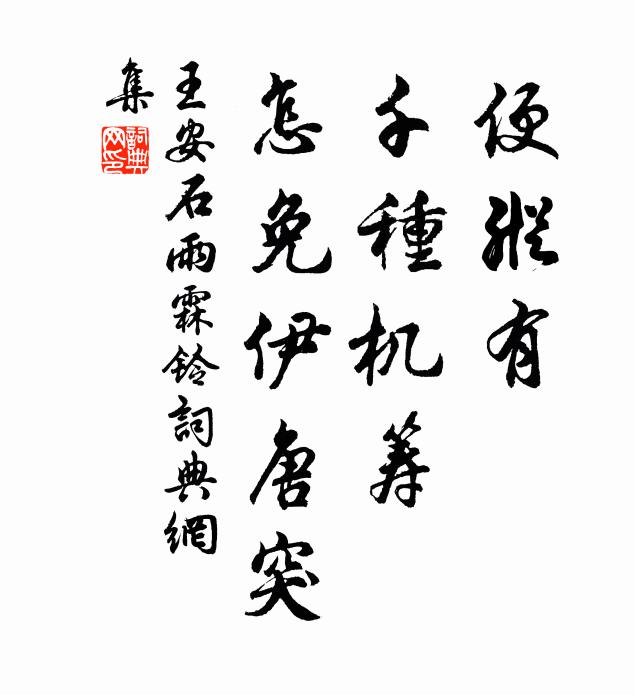 便縱有
千種机筹
怎免伊唐突
王安石雨霖鈴詞典網
集
詞典網印